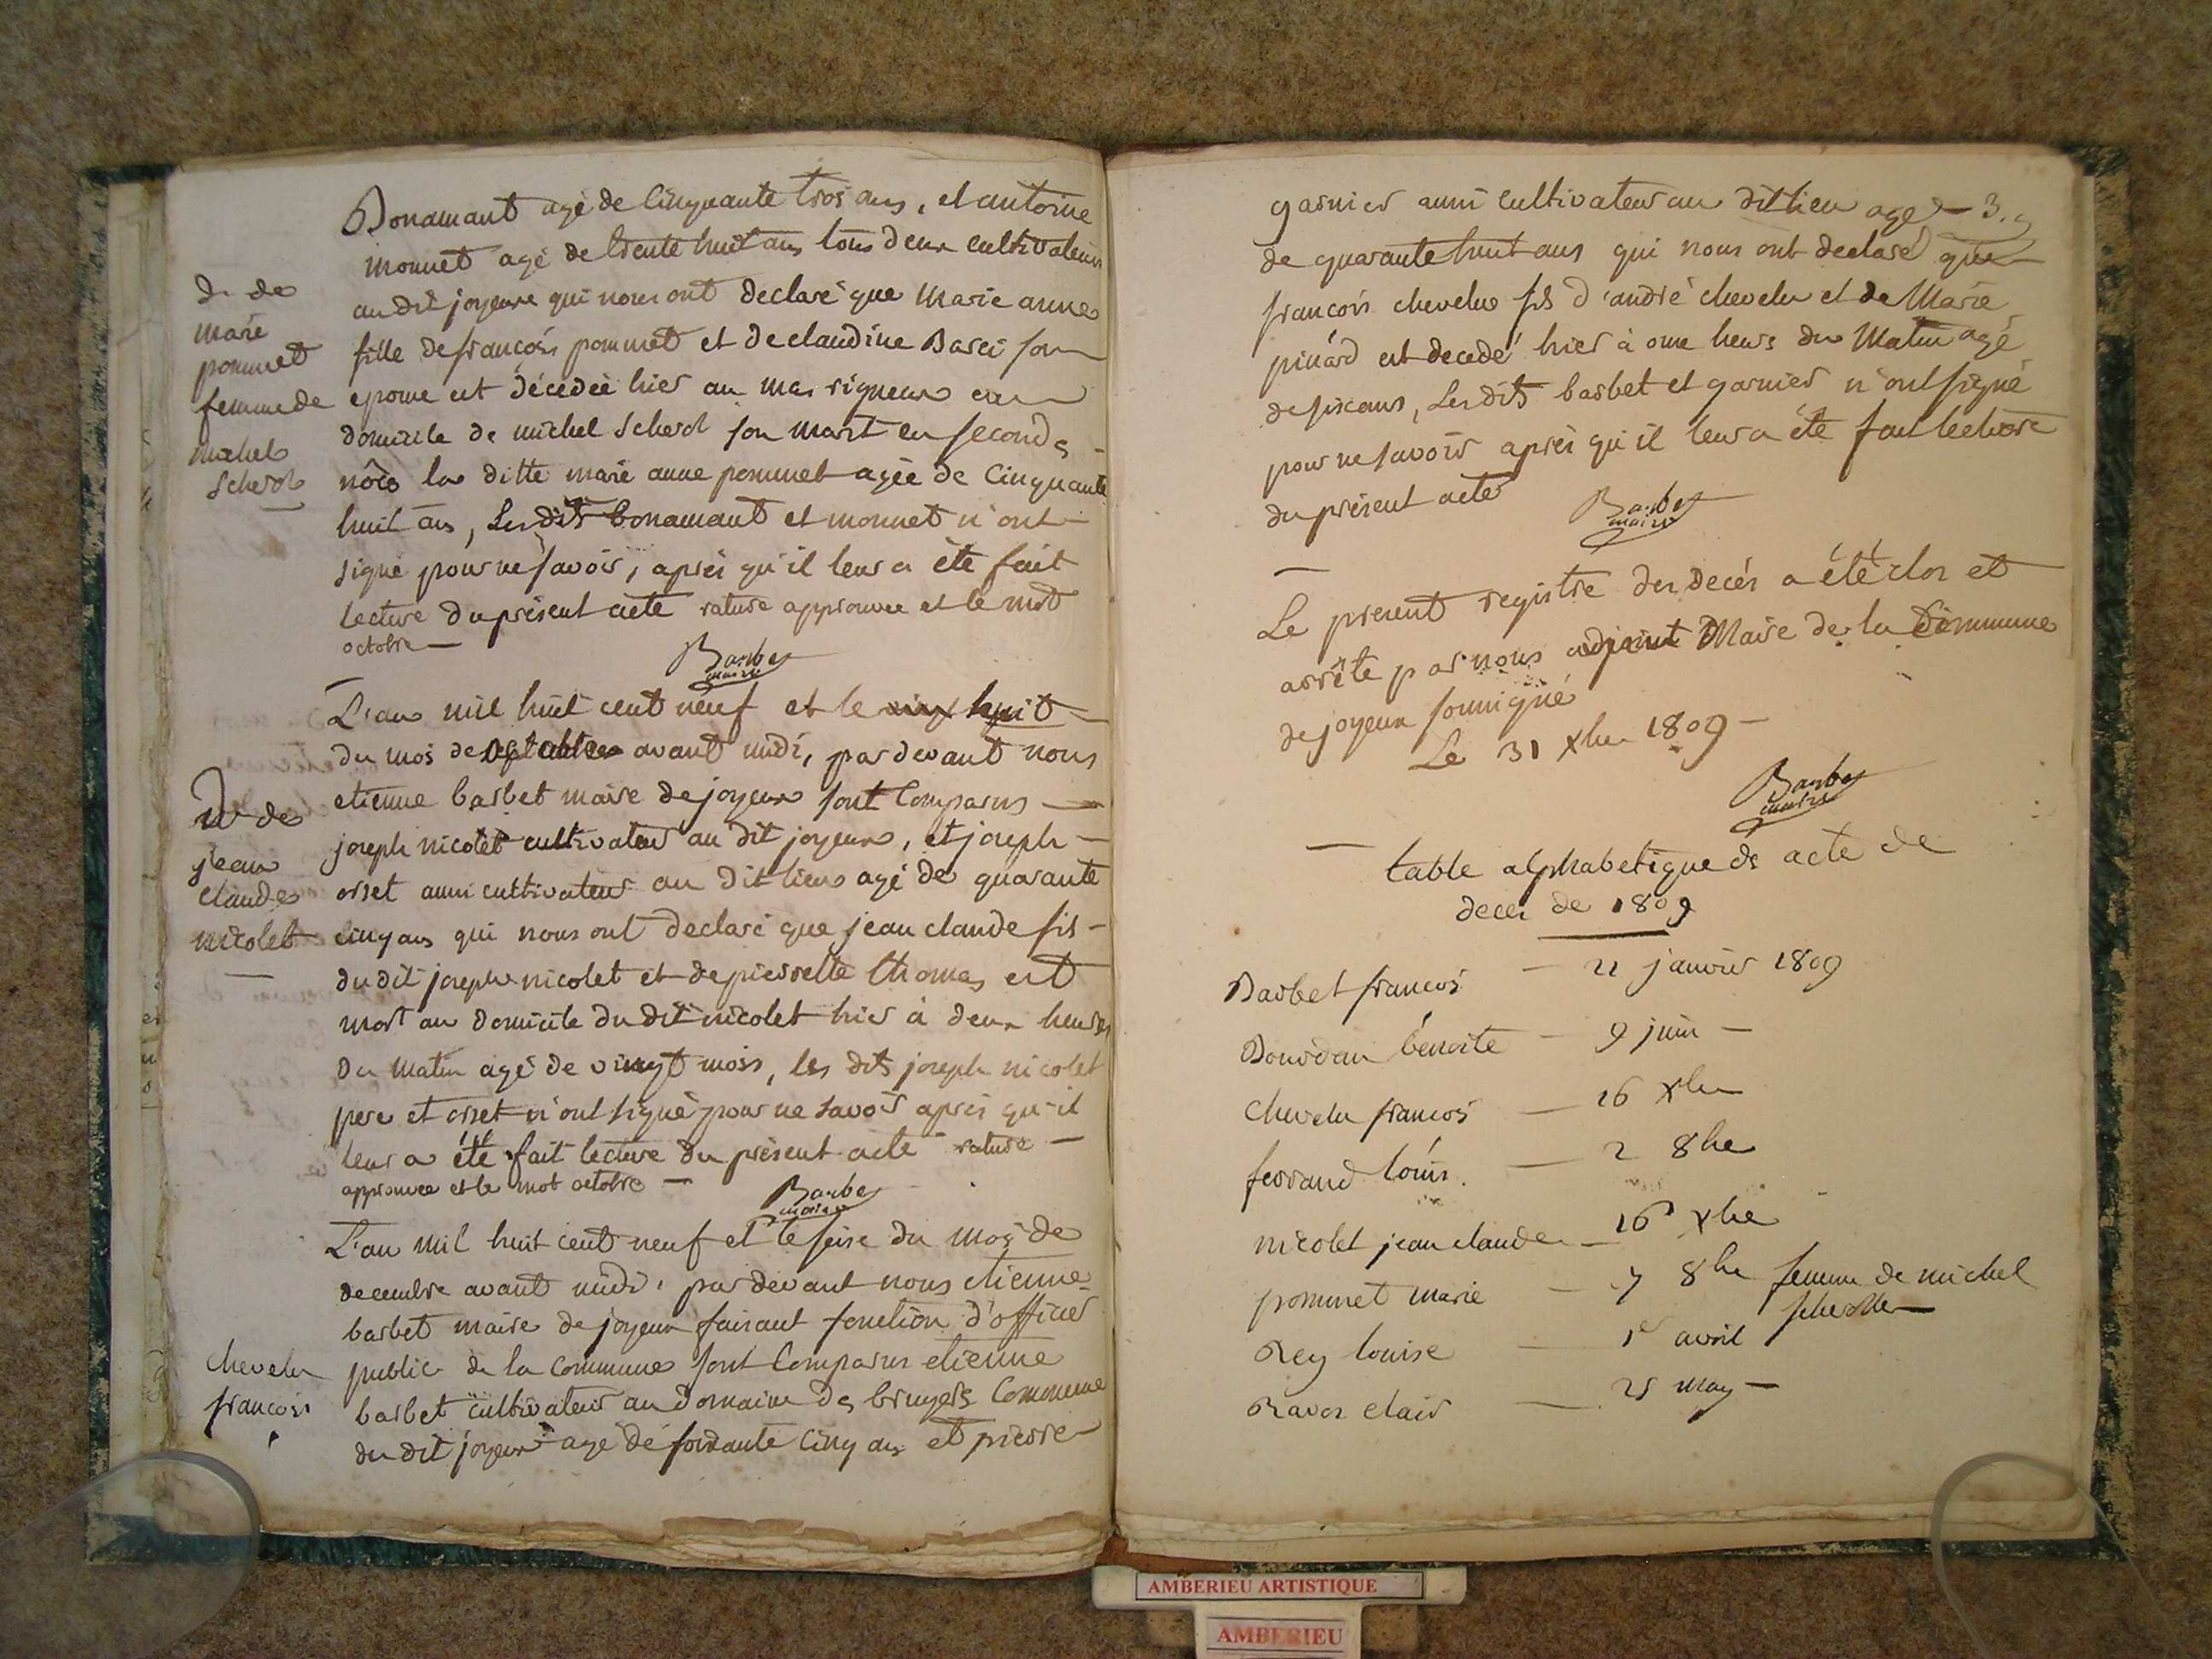 Bonamant agé de Cinquante trois ans, et antoine
monnet agé de trente huit ans tous deux cultivateurs
au dit joyeux qui nous ont declaré que Marie anne
fille de francois pommet et de claudine Barci son
epouse est décédée hier au mas rigneux au
domicile de michel Scherol son mari en seconde
nôce la ditte marie anne pommet agée de Cinquante
huit ans, Les dits bonamant et monnet n'ont
signé pour ne savoir, après qu'il leur a été fait
lecture du présent acte rature approuvee et le mot
octobre
Barbet
maire
D. de
marie
pommet
femme de
michel
Scherol
L'an mil huit cent neuf et le huit
du mois de avant midi, par devant nous
etienne barbet maire de joyeux sont Comparus
joseph nicolet cultivateur au dit joyeux, et joseph
orset aussi cultivateur au dit lieu agé de quarante
cinq ans qui nous ont declaré que jean claude fils
du dit joseph nicolet et de pierrette thomas est
mort au domicile du dit nicolet hier à deux heures
du matin agé de vingt mois, les dits joseph nicolet
pere et orset n'ont signé pour ne savoir après qu'il
leur a été fait lecture du présent acte rature
approuvee et le mot octobre
Barbet
maire
D. de
jean
claude
nicolet
L'an mil huit cent neuf et le seise du mois de
decembre avant midi, par devant nous etienne
barbet maire de joyeux faisant fonction d'officier
public de la commune sont Comparus etienne
barbet cultivateur au domaine des bruyers Commune
du dit joyeux agé de soixante cinq ans et pierre
Chevelu
francois
garnier aussi cultivateur au dit lieu agé
de quarante huit ans qui nous ont declaré que
francois chevelu fils d'andré chevelu et de Marie
pinard est decedé hier à onze heurs du Matin agé
de six ans, Les dits barbet et garnier n'ont signé
pour ne savoir après qu'il leur a été fait lecture
du présent acte
Barbet
maire
Le present registre des decés a été clos et
arrêté par nous adjoint Maire de la Commune
de joyeux soussigné
Le 31 xbre 1809
Barbet
maire
table alphabetique ds acte de
deces de 1809
Barbet francois — 22 janvier 1809
Bourdan benoite — 9 juin —
Chevelu francois — 16 xbre
ferrand louis. — 2 8bre
nicolet jean claude — 16 xbre
pommet marie — 7 8bre femme de michel
scherolle
Rey louise — 1er avril
Ravor clair — 25 may —
AMBERIEU ARTISTIQUE
AMBERIEU